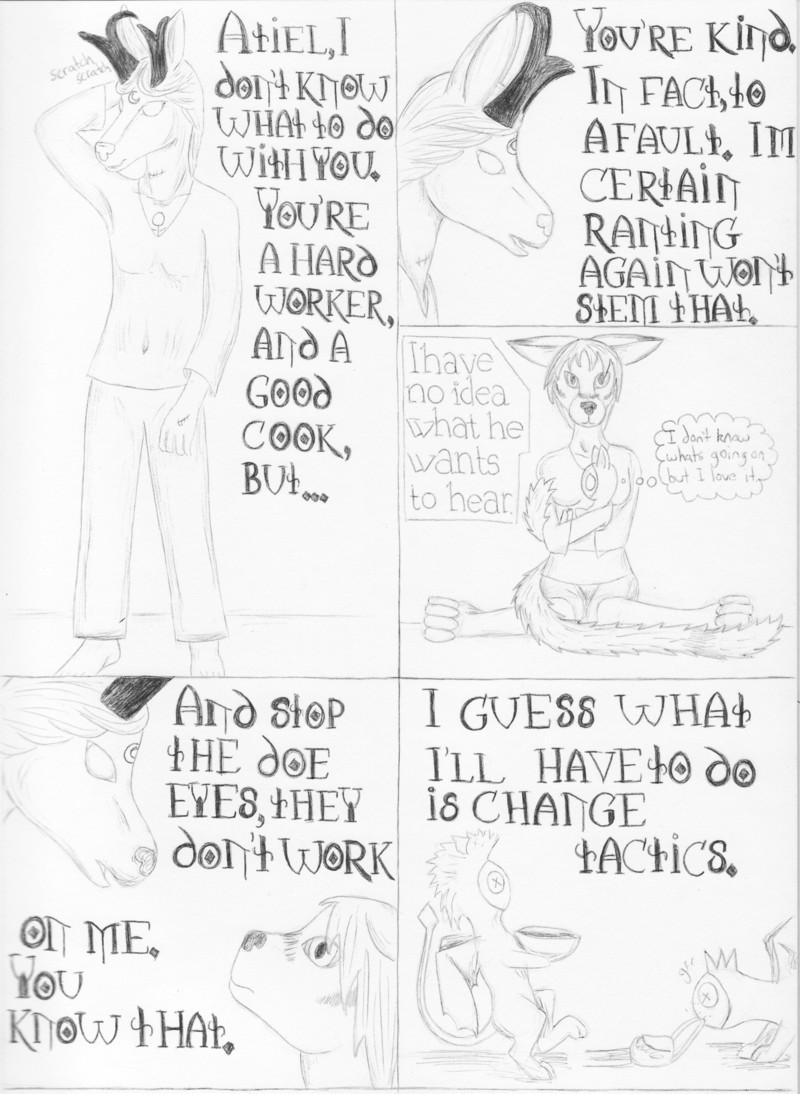 scratch
scratch
Atiel, I
don't know
what to do
with you.
You're
a hard
worker,
and a
good
cook,
but...
You're kind.
In fact, to
a fault. Im
certain
ranting
again won't
stem that.
I have
no idea
what he
wants
to hear.
I don't know
whats going on
but I love it.
And stop
the doe
eyes, they
don't work
on me.
You
know that.
I guess what
I'll have to do
is change
tactics.
grr